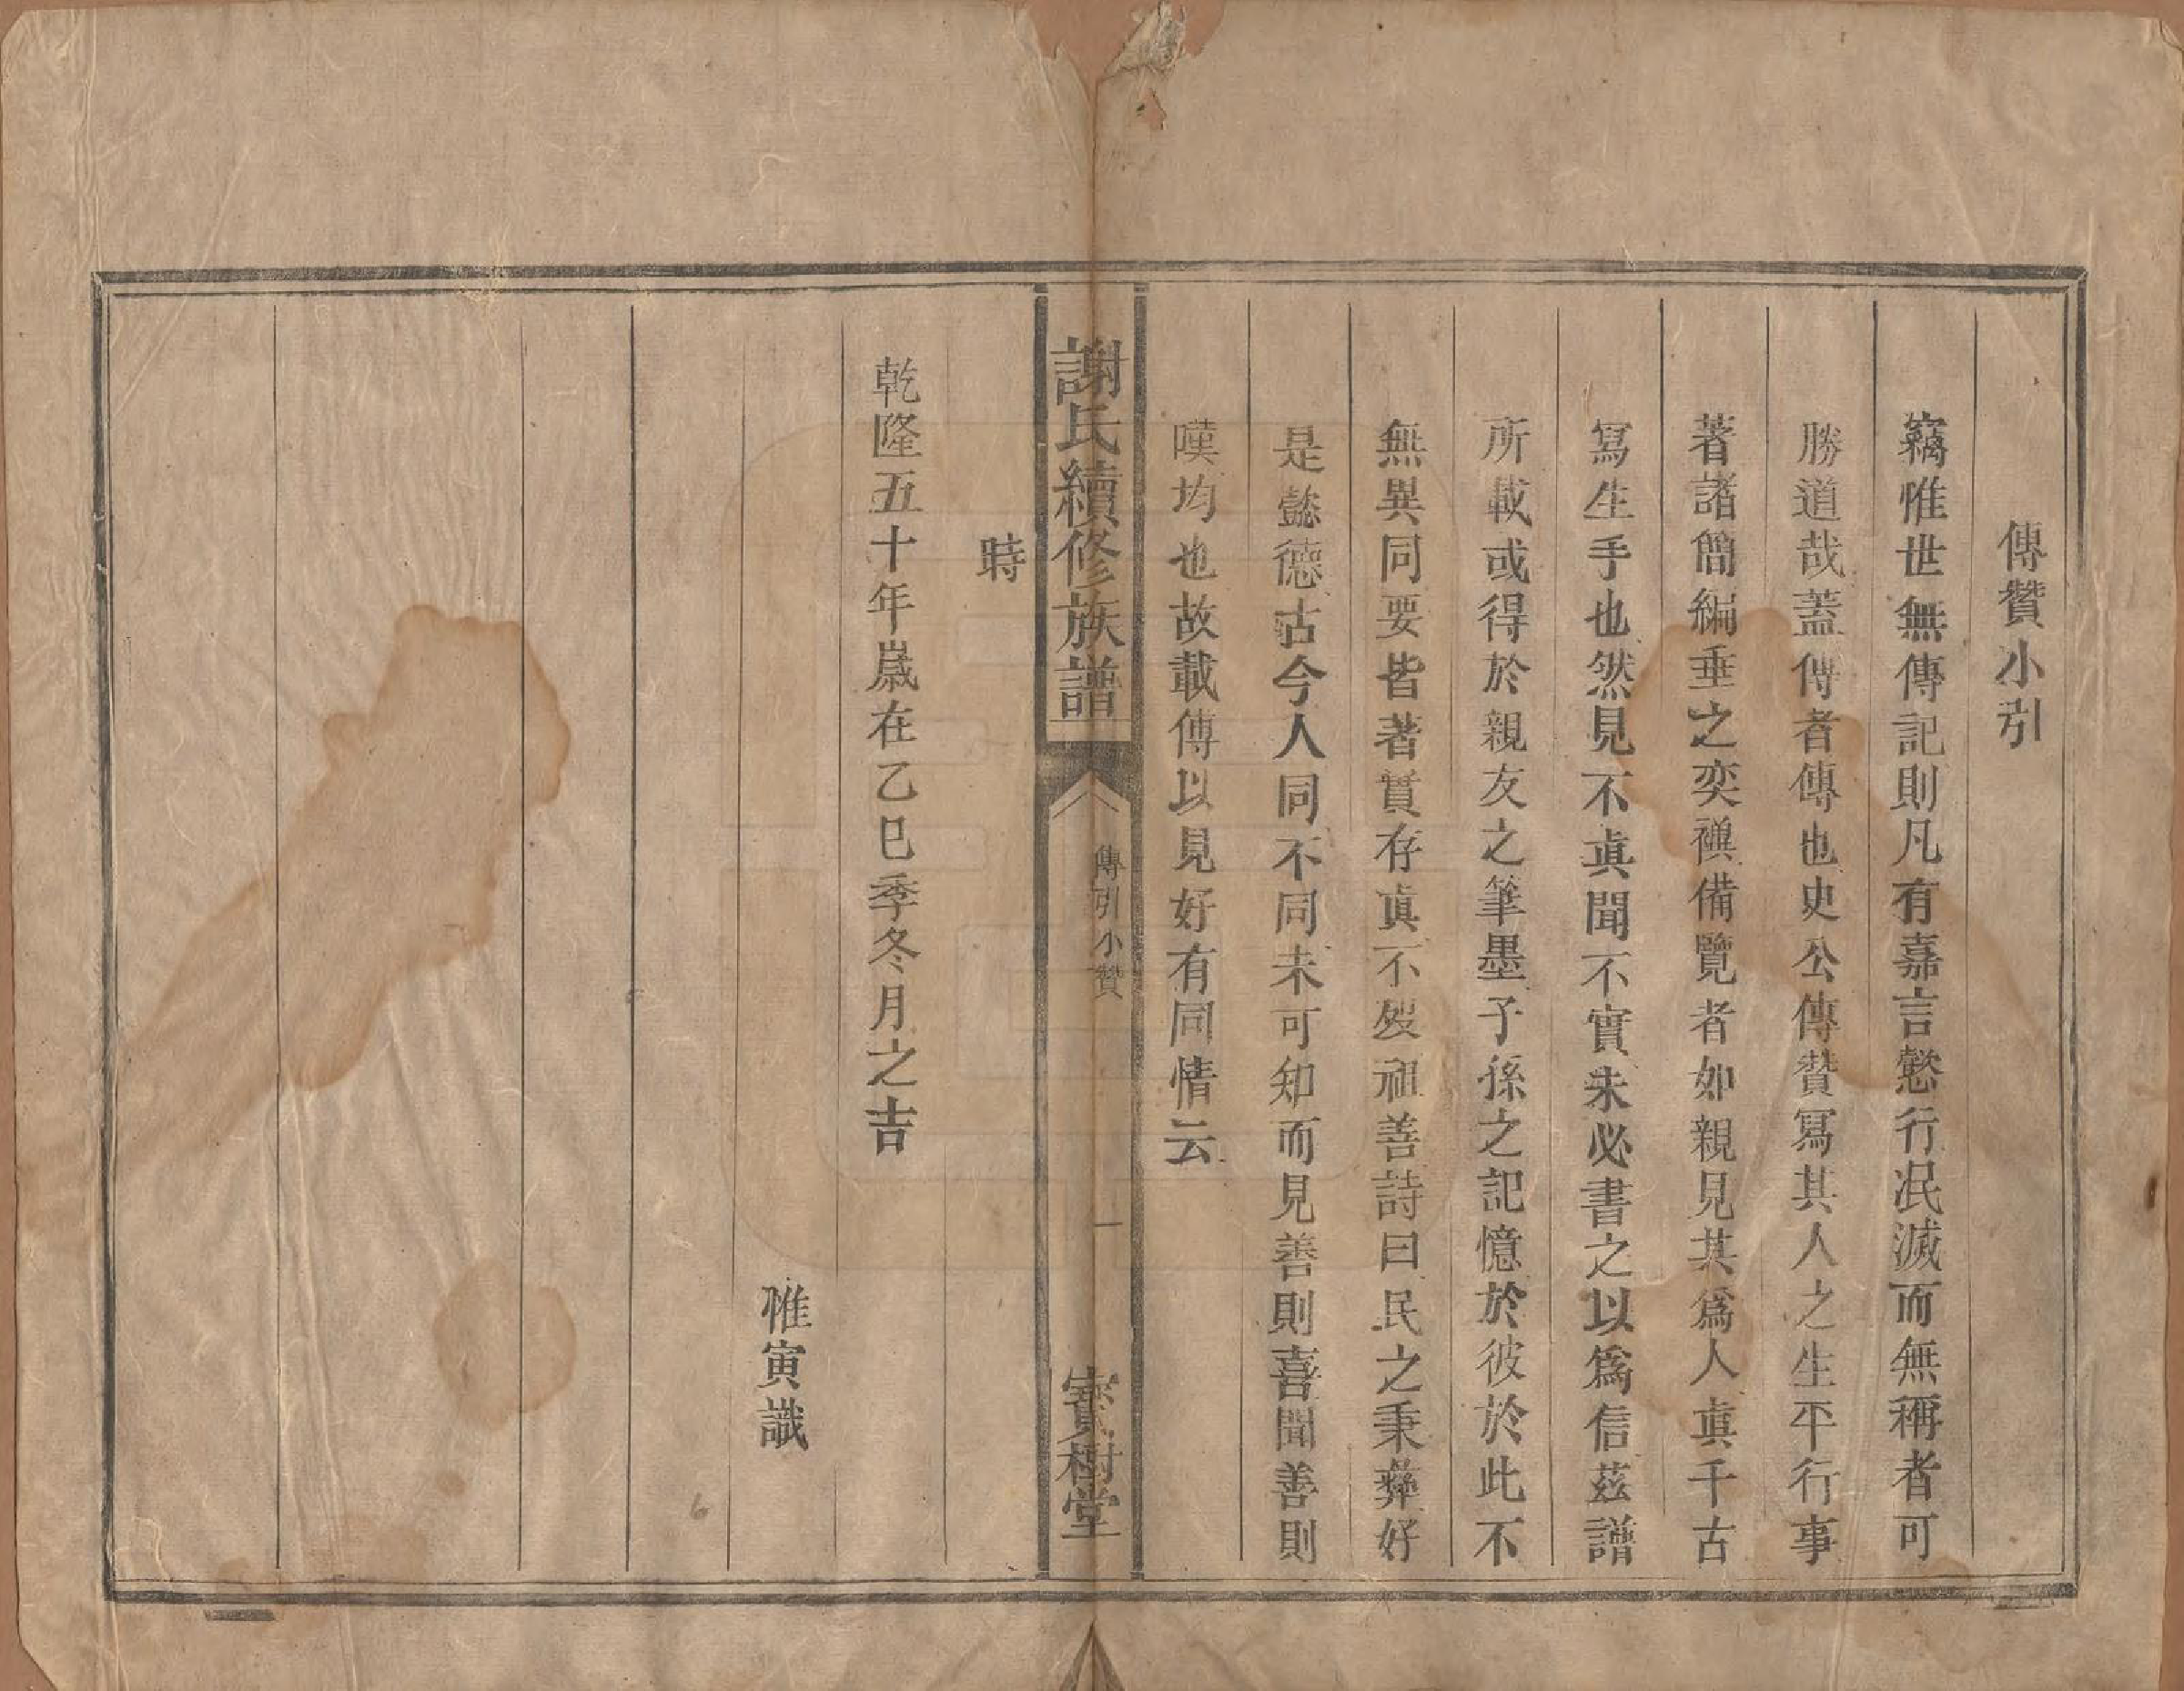 傳贊小引
竊惟世無傳記則凡有嘉言懿行泯滅而無稱者可
勝道哉蓋傳者傳也史公傳贊寫其人之生平行事
著諸簡編垂之奕禩備覽者如親見其爲人眞千古
寫生手也然見不眞聞不實未必書之以爲信茲譜
所載或得於親友之筆墨子孫之記憶於彼於此不
無異同要皆著實存眞不歿祖善詩曰民之秉彝好
是懿德古今人同不同未可知而見善則喜聞善則
嘆均也故載傳以見好有同情云
謝氏續修族譜
傳引小贊
一
寳樹堂
時
乾隆五十年歲在乙巳季冬月之吉
惟寅識
6